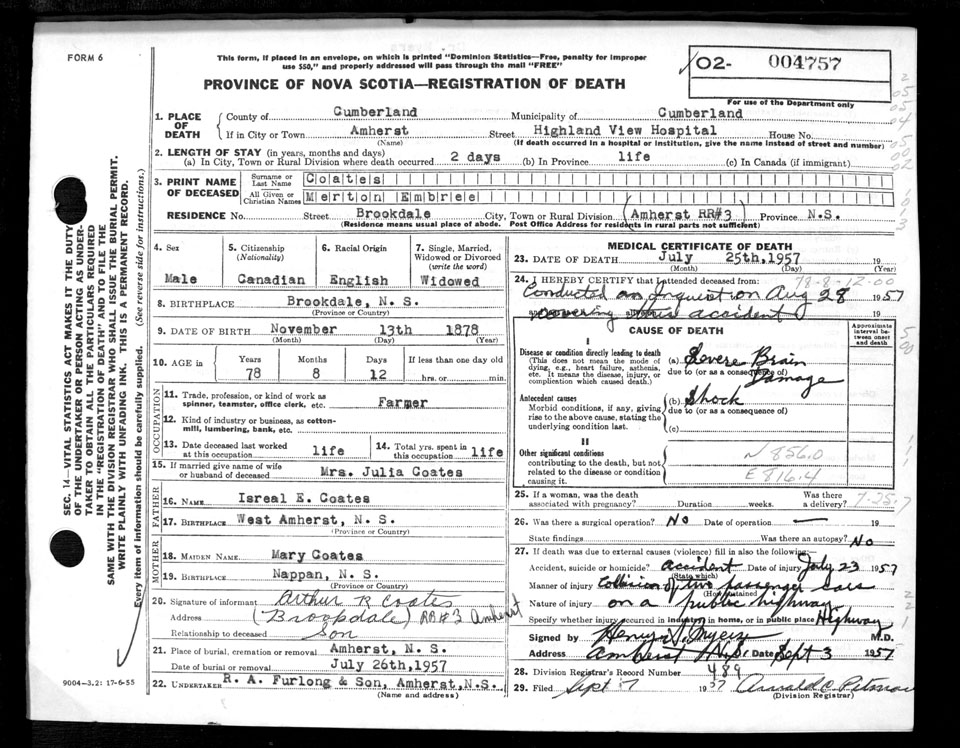 FORM 6
This form, if placed in an envelope, on which is printed "Dominion Statistics—Free, penalty for improper
use $50," and properly addressed will pass through the mail "FREE"
PROVINCE OF NOVA SCOTIA—REGISTRATION OF DEATH
02- 004757
For use of the Department only
1. PLACE OF DEATH
County of Cumberland Municipality of Cumberland
If in City or Town Amherst Street Highland View Hospital House No.
(Name) (If death occurred in a hospital or institution, give the name instead of street and number)
2. LENGTH OF STAY (in years, months and days)
(a) In City, Town or Rural Division where death occurred 2 days (b) In Province life (c) In Canada (if immigrant)
3. PRINT NAME OF DECEASED
Surname or Last Name Coates
All Given or Christian Names Merton Embree
RESIDENCE No. Street Brookdale City, Town or Rural Division (Amherst RR#3) Province N.S.
(Residence means usual place of abode. Post Office Address for residents in rural parts not sufficient)
4. Sex
Male
5. Citizenship (Nationality)
Canadian
6. Racial Origin
English
7. Single, Married, Widowed or Divorced (write the word)
Widowed
8. BIRTHPLACE Brookdale, N. S.
(Province or Country)
9. DATE OF BIRTH November 13th 1878
(Month) (Day) (Year)
10. AGE in Years Months Days If less than one day old
78 8 12 hrs. or min.
OCCUPATION
11. Trade, profession, or kind of work as spinner, teamster, office clerk, etc. Farmer
12. Kind of industry or business, as cotton-mill, lumbering, bank, etc.
13. Date deceased last worked at this occupation life
14. Total yrs. spent in this occupation life
15. If married give name of wife or husband of deceased Mrs. Julia Coates
FATHER
16. NAME Isreal E. Coates
17. BIRTHPLACE West Amherst, N. S.
(Province or Country)
MOTHER
18. MAIDEN NAME Mary Coates
19. BIRTHPLACE Nappan, N. S.
(Province or Country)
20. Signature of informant Arthur R Coates
Address (Broopdale) RR#3 Amherst
Relationship to deceased Son
21. Place of burial, cremation or removal Amherst, N. S.
Date of burial or removal July 26th,1957
22. UNDERTAKER R. A. Furlong & Son, Amherst,N.S.
(Name and address)
MEDICAL CERTIFICATE OF DEATH
23. DATE OF DEATH July 25th,1957 19
(Month) (Day) (Year)
24. I HEREBY CERTIFY that I attended deceased from
78-8-12-00
Conducted an Inquest on Aug 28 1957
covering this accident
CAUSE OF DEATH
Approximate interval between onset and death
I
Disease or condition directly leading to death
(This does not mean the mode of dying, e.g., heart failure, asthenia, etc. It means the disease, injury, or complication which caused death.)
(a) Severe Brain Damage
due to (or as a consequence of)
Antecedent causes
Morbid conditions, if any, giving rise to the above cause, stating the underlying condition last.
(b) Shock
due to (or as a consequence of)
(c)
II
Other significant conditions
contributing to the death, but not related to the disease or condition causing it.
N 856.0
E 816.4
25. If a woman, was the death associated with pregnancy? Duration weeks. Was there a delivery?
7.25.7
26. Was there a surgical operation? No Date of operation — 19
State findings Was there an autopsy? No
27. If death was due to external causes (violence) fill in also the following:—
Accident, suicide or homicide? accident Date of injury July 23 1957
(State which)
Manner of injury Collision of two passenger cars
(How sustained)
Nature of injury on a public highway
Specify whether injury occurred in industry, in home, or in public place Highway
Signed by Henry S. Myers M.D.
Address Amherst N.S. Date Sept 3 1957
28. Division Registrar's Record Number 489
29. Filed Sept 7 1957 Arnold C. Pitman
(Division Registrar)
SEC. 14—VITAL STATISTICS ACT MAKES IT THE DUTY
OF THE UNDERTAKER OR PERSON ACTING AS UNDER-
TAKER TO OBTAIN ALL THE PARTICULARS REQUIRED
IN THE "REGISTRATION OF DEATH" AND TO FILE THE
SAME WITH THE DIVISION REGISTRAR WHO SHALL ISSUE THE BURIAL PERMIT.
WRITE PLAINLY WITH UNFADING INK. THIS IS A PERMANENT RECORD.
Every item of information should be carefully supplied. (See reverse side for instructions.)
9004—3.2: 17-6-55